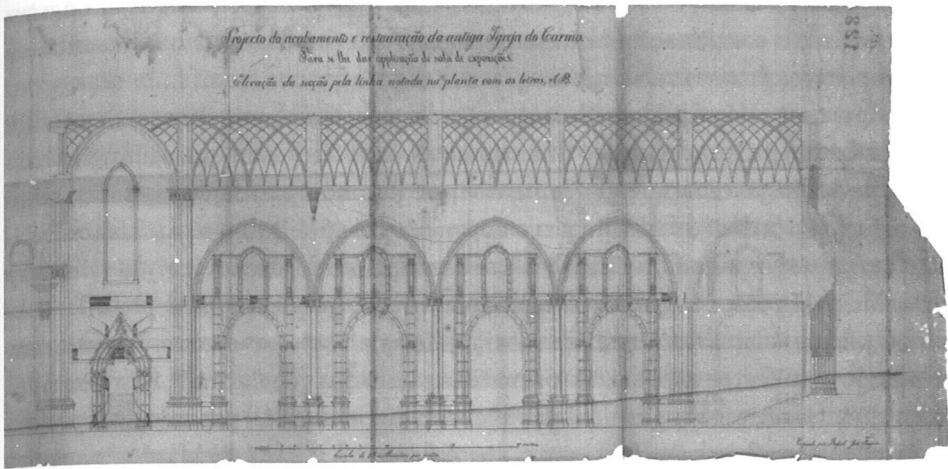 Projecto do acabamento e restauração da antiga Igreja do Carmo.
Para se lhe dar applicação de sala de exposições.
Elevação da secção pela linha notada na planta com as letras, A.B.
Escala de por metro
por José